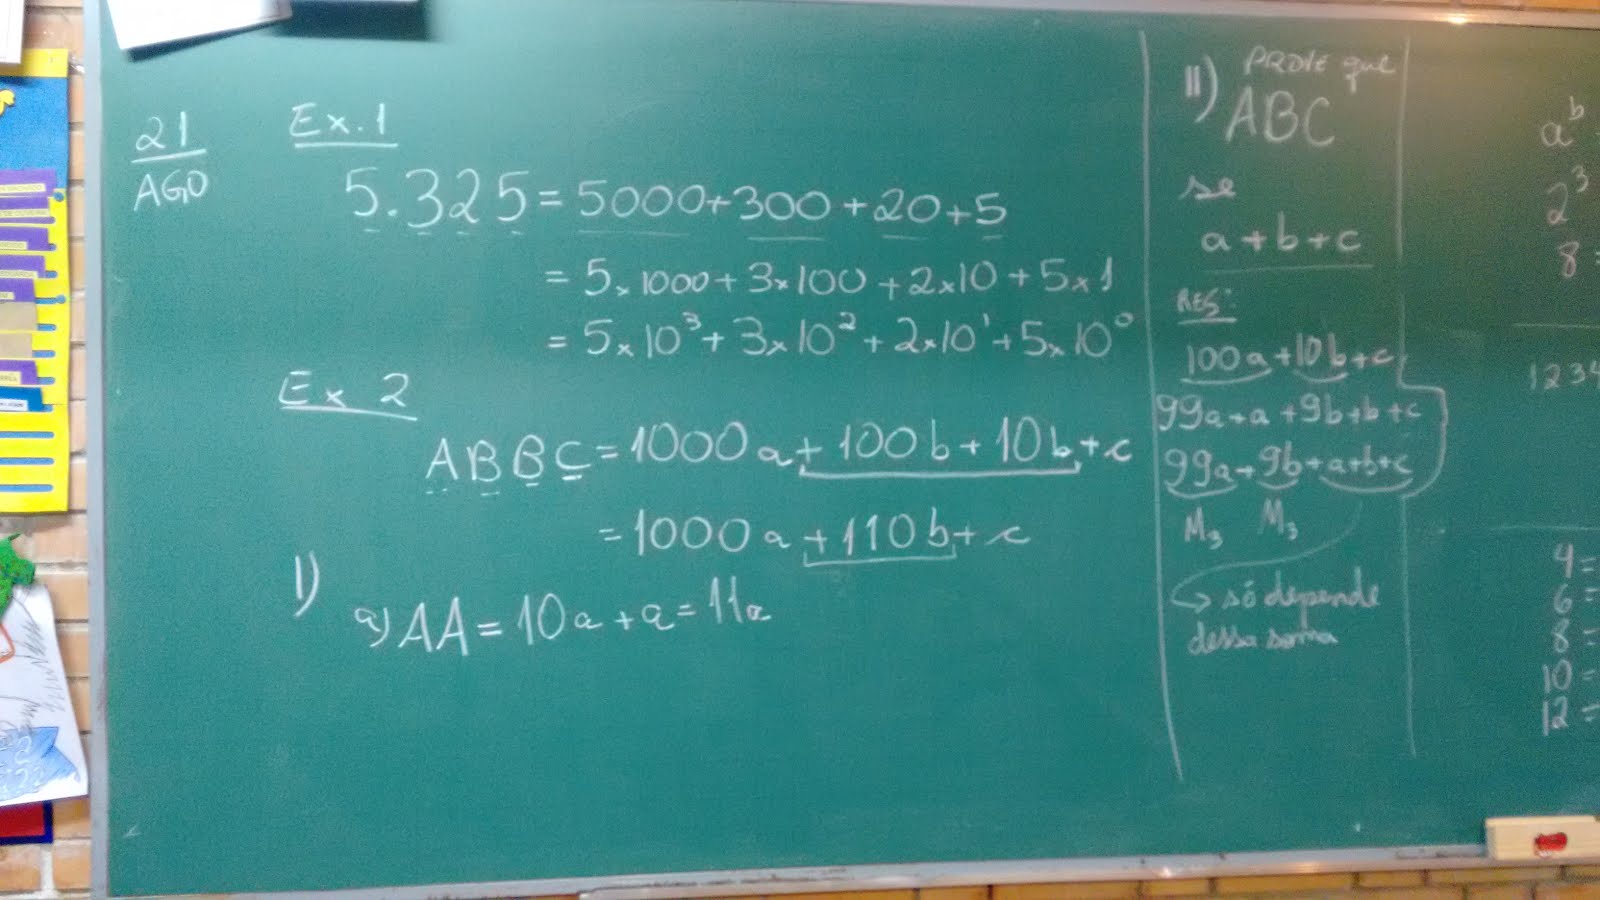 21
AGO
Ex. 1
5.325 = 5000+300+20+5
= 5×1000+3×100+2×10+5×1
= 5×10³+3×10²+2×10¹+5×10⁰
Ex 2
ABBC = 1000a+100b+10b+c
= 1000a+110b+c
I)
a) AA = 10a+a = 11a
II) PROVE que
ABC
se
a+b+c
RES:
100a+10b+c
99a+a+9b+b+c
99a+9b+a+b+c
M₃ M₃
só depende
dessa soma
aᵇ
2³
8 =
1234
4 =
6 =
8 =
10 =
12 =